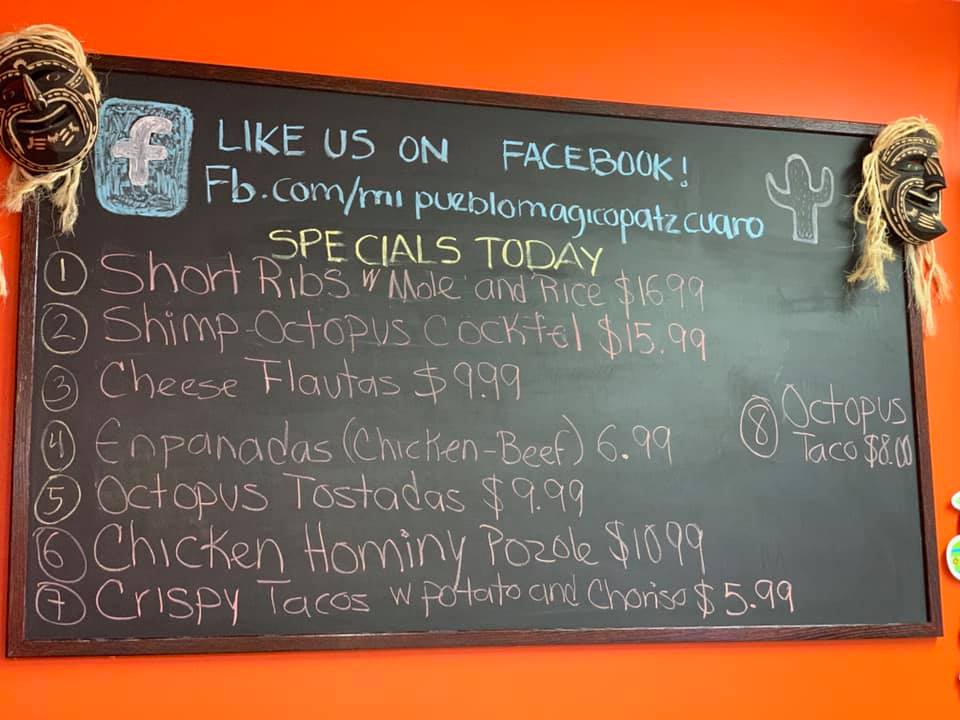 f
LIKE US ON FACEBOOK!
Fb.com/mi pueblomagicopatzcuaro
SPECIALS TODAY
1 Short Ribs w Mole and Rice $16.99
2 Shimp-Octopus Cocktel $15.99
3 Cheese Flautas $9.99
4 Enpanadas (Chicken-Beef) 6.99
5 Octopus Tostadas $9.99
6 Chicken Hominy Pozole $10.99
7 Crispy Tacos w potato and Choriso $5.99
8 Octopus
Taco $8.00